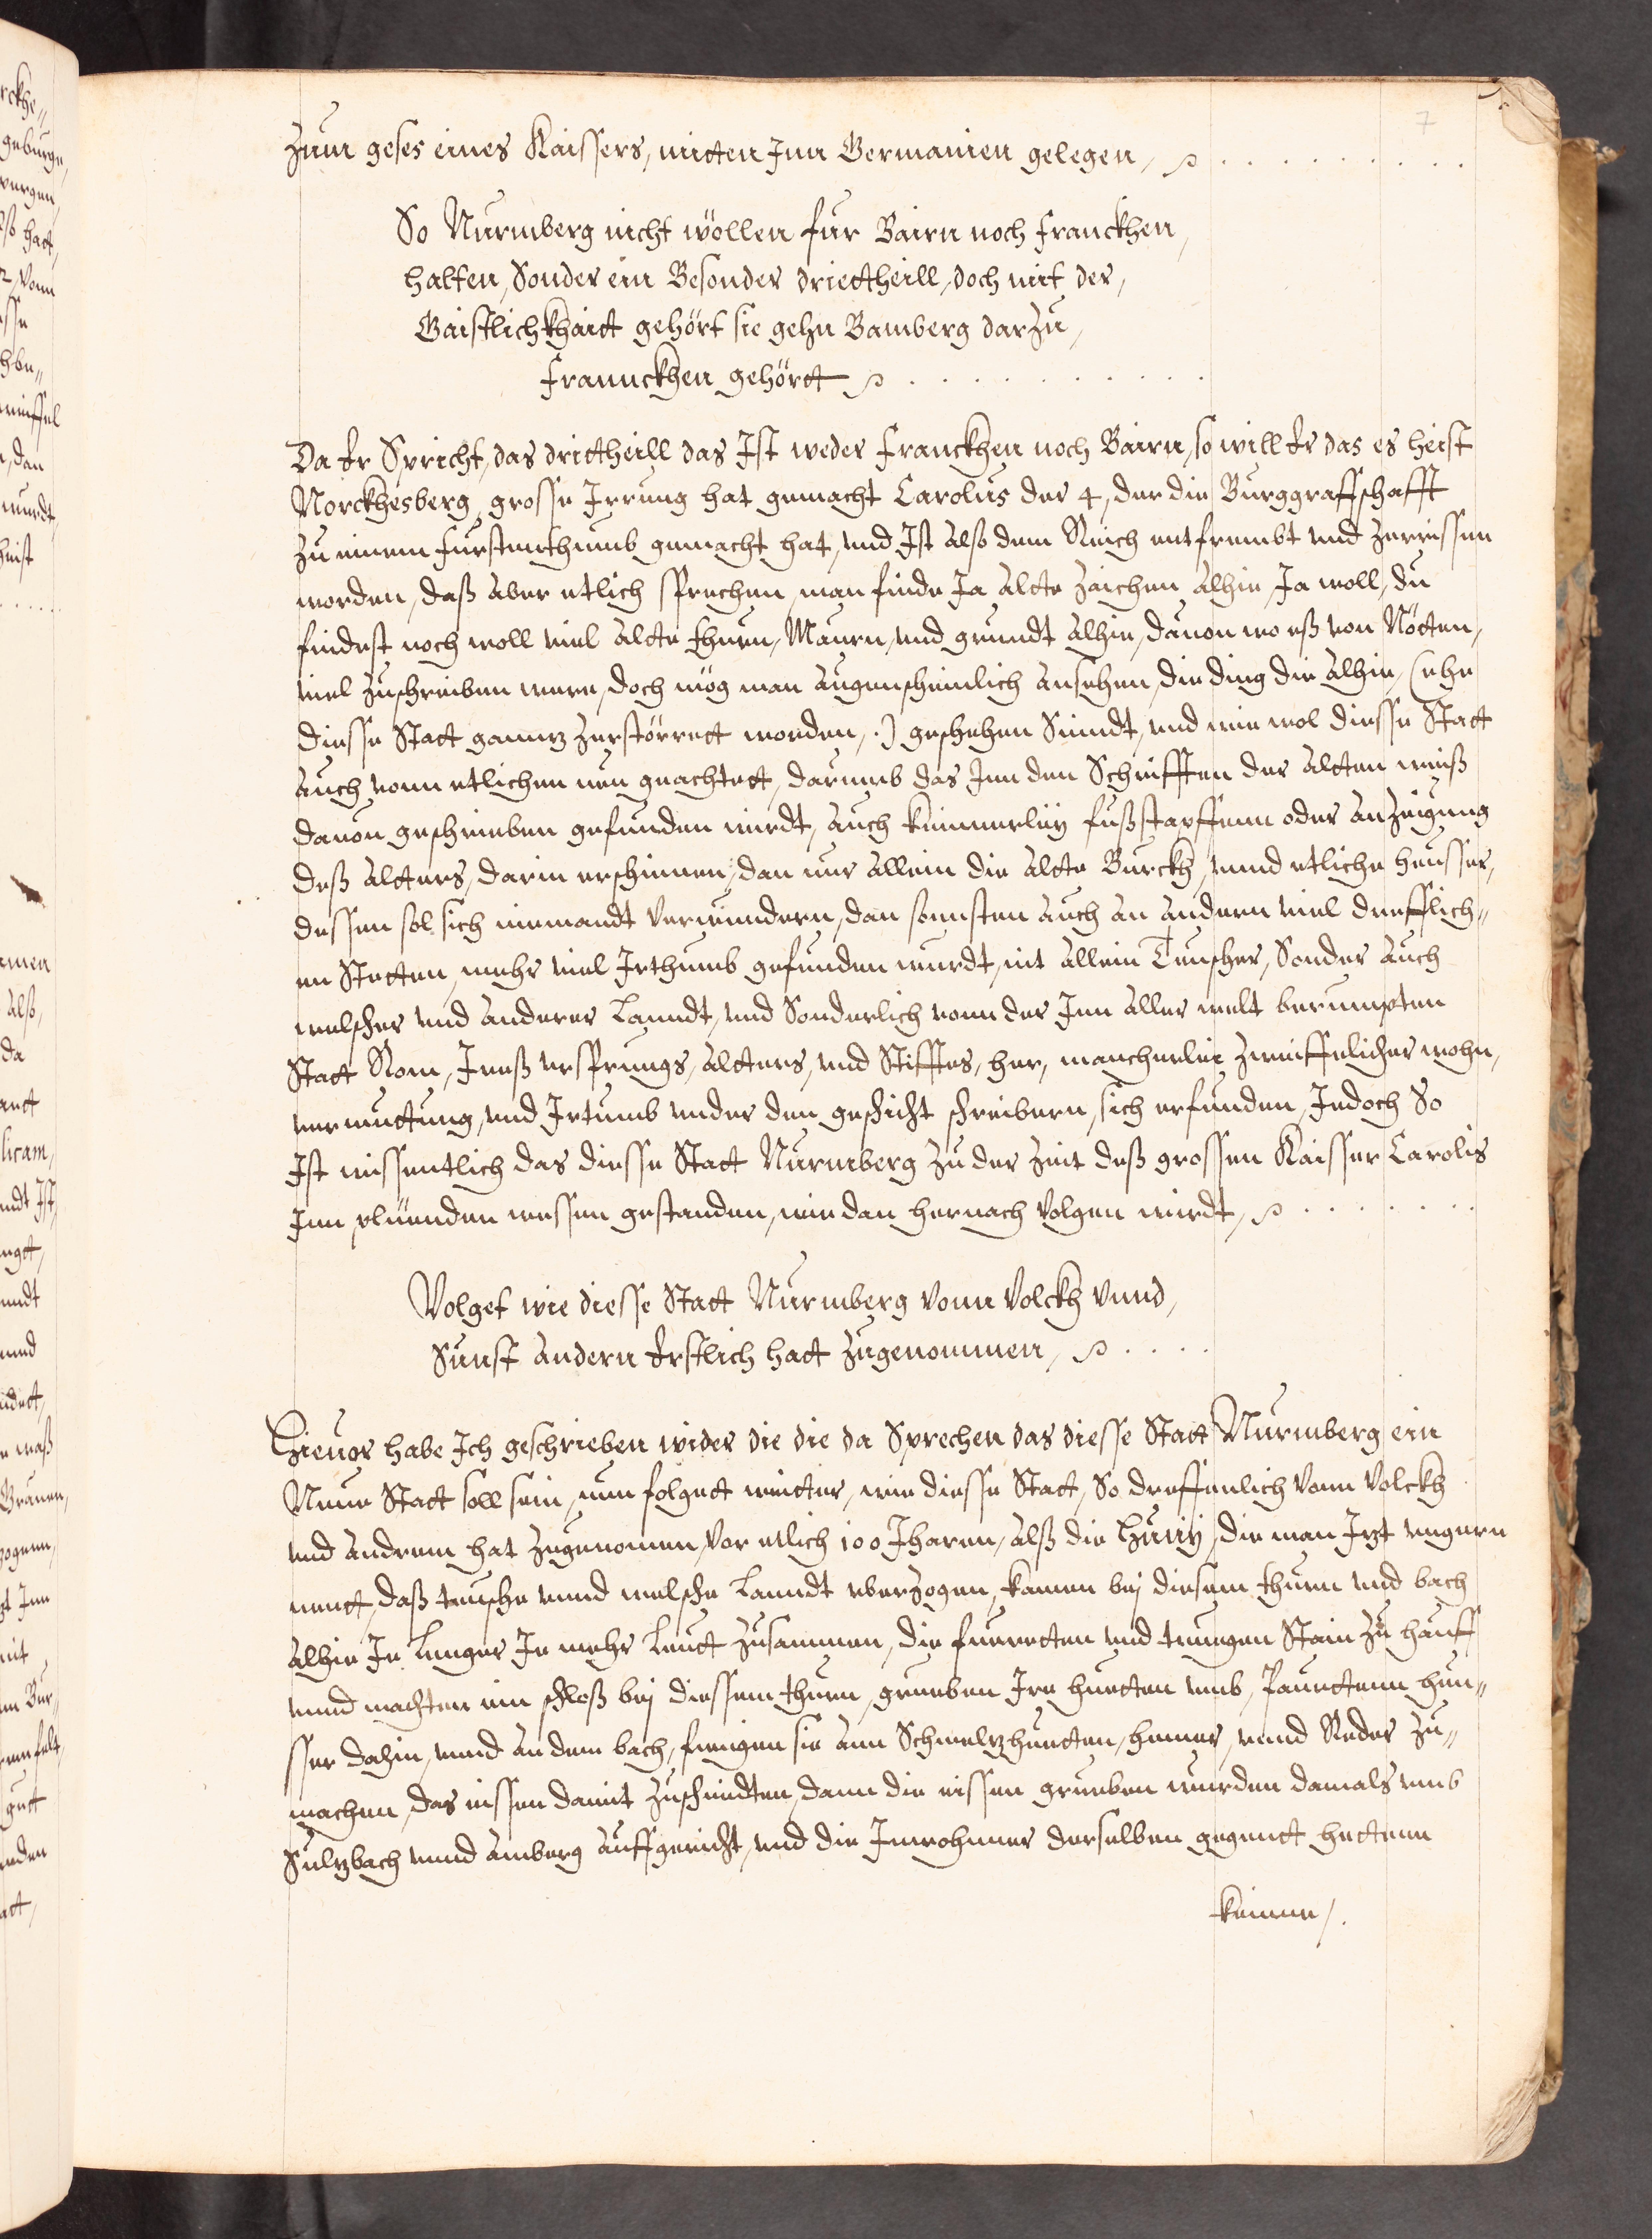 7
zum geses eines Kaissers, mitten Inn Germanien gelegen,
So Nurmberg nicht wöllen fur Bairn noch Franckhen,
halten, Sonder ein Besonder driettheill, doch mit der,
Gaistlichkhaitt gehört sie gehn Bamberg darzu,
Frannckhen gehörtt
Da Er Spricht, das drittheill das Ist weder Franckhen noch Bairn, so will Er das es heist
Norckhesberg, grosse Irrung hat gemacht Carolus der 4, der die Burggraffschafft
zu einem Furstenthumb gemacht hat, und Ist also dem Reich entfrembt und zerrissen
worden, daß aber etlich sprechen, man finde Ja altte zaichen alhie, Ja woll, du
findest noch woll viel altte thurn, Maurn, und grundt alhie, dauon wo eß von Nötten,
viel zuschreiben were, doch mög man augenscheinlich ansehen, die ding die alhie, (ehe
diesse Statt ganntz zerstörrett worden,.) geschehen Sindt, und wie wol diesse Statt
auch vonn etlichen neu geachtett, darumb das Inn den Schrifften der altten weniß
dauon geschrieben gefunden wirdt, auch keinnerley fußstapffenn oder anzeigung
deß altters, darin erscheinen, dan nur allein die altte Burckh, unnd etliche heusser,
dessen sol sich niemandt verwundern, dan sonnsten auch an andern viel drefflich=
en Stetten, mehr viel Irthumb gefunden wurdt, nit allein Teuscher, Sonder auch
welscher und anderer Lanndt, und Sonderlich vonn der Inn aller welt berumpten
Statt Rom, Ireß ursprungs, altters, und Stifftes, her, mancherleie zweiffelicher wohn,
vermuttung, und Irtumb under den geschicht schreibern, sich erfunden, Jedoch So
Ist wissentlich das diesse Statt Nurmberg zu der Zeit deß grossen Kaisser Carolis
Inn pluenden wessen gestanden, wie dan hernach Volgen wirdt,
Volget wie diesse Statt Nurmberg vonn Volckh vnnd,
Sunst andern Erstlich hatt zugenommen,
Hieuor habe Ich geschrieben wider die die da Sprechen das diesse Statt Nurmberg ein
Neue Statt soll sein, nun folgett weitter, wie diesse Statt, So dreffenlich vonn Volckh
und anderm hat zugenomen, vor etlich 100 Jharen, alß die Huny, die man Jtzt ungern
nentt, daß teusche unnd welsche Lanndt uberzogen, kamen bej diesem thurn und bach
alhie Je lenger Je mehr Leutt zusammen, die fueretten und trugen Stain zu hauff
unnd machten ein schloß bej diessem thurn, grueben Ire huetten umb, Pauettenn heu=
sser dahin, unnd an dem bach, fiengen sie ann Schmeltzhuetten, hemer, unnd Reder zu=
machen, das eissen damit zuschmidten, dann die eissen grueben wurden damals umb
Sultzbach unnd Amberg auffgericht, und die Inwohnner derselben gegentt hettenn
keinnen/.